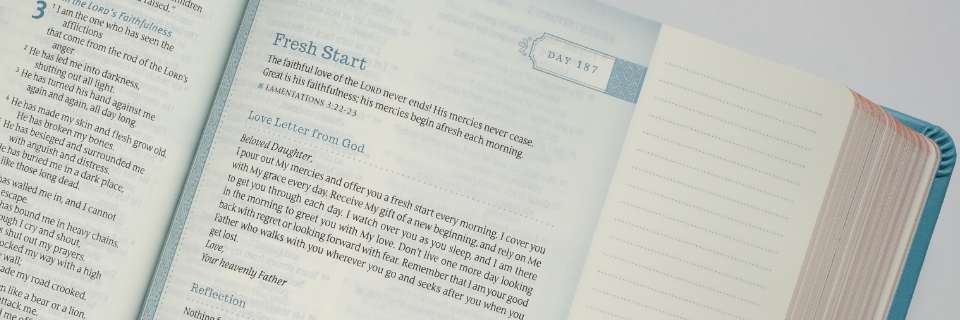 raised."
children
the LORD's Faithfulness
3 1 I am the one who has seen the
afflictions
that come from the rod of the LORD's
anger.
2 He has led me into darkness,
shutting out all light.
3 He has turned his hand against me
again and again, all day long.
4 He has made my skin and flesh grow old.
He has broken my bones.
5 He has besieged and surrounded me
with anguish and distress.
He has buried me in a dark place,
like those long dead.
has walled me in, and I cannot
escape.
has bound me in heavy chains.
though I cry and shout,
s shut out my prayers.
ocked my way with a high
wall;
ade my road crooked.
n like a bear or a lion,
attack me.
DAY 187
Fresh Start
The faithful love of the LORD never ends! His mercies never cease.
Great is his faithfulness; his mercies begin afresh each morning.
LAMENTATIONS 3:22-23
Love Letter from God
Beloved Daughter,
I pour out My mercies and offer you a fresh start every morning. I cover you
with My grace every day. Receive My gift of a new beginning, and rely on Me
to get you through each day. I watch over you as you sleep, and I am there
in the morning to greet you with My love. Don't live one more day looking
back with regret or looking forward with fear. Remember that I am your good
Father who walks with you wherever you go and seeks after you when you
get lost.
Love,
Your heavenly Father
Reflection
Nothing